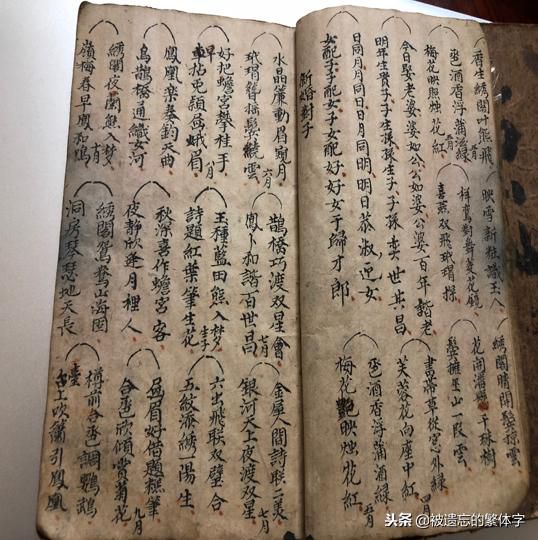 香生綉閣叶熊飛
巹酒香浮蒲酒綠 五月
梅花映照烛花紅
今日娶老婆婆如公公如婆公婆百年諧老
明年生貴子子生孫孫生子子孫奕世其昌
日同月月同日日月同明明日恭淑迎女
女配子子配女子女配好好女于歸才郎
新婚對子
映雪新粧識玉人
祥鸞對舞菱花鏡
喜燕双飛玳瑁樑
綉閣晴開鬢掠雲
花開滿 千珠樹
鬢擁巫山一段雲
書帶草從窓外綠
芙蓉花向座中紅 四月
巹酒香浮蒲酒綠
梅花艷映烛花紅 五月
水晶簾動眉窺月
玳瑁簪搖鬢繞雲 六月
好把蟾宮攀桂手
早拈兎頴畫蛾眉 八月
鳳凰樂奏鈞天曲
烏鵲橋通織女河
綉閣夜闌熊入梦
嶺梅春早鳳和鳴 十月
鵲橋巧渡双星會 七月
鳳卜和諧百世昌
玉種藍田熊入梦 生子
詩題紅葉筆生花
秋深喜作蟾宮客
夜静欣逢月裡人
綉閣鴛鴦山海固
洞房琴瑟地天長
金屋人間詩联二美
銀河天上夜渡双星 七月
六出飛联双璧合
五紋添綉一陽生
画眉好借題糕筆
合巹欣傾賞菊花 九月
樽前合巹調鸚鵡
臺上吹簫引鳳凰
头条 @被遗忘的繁体字